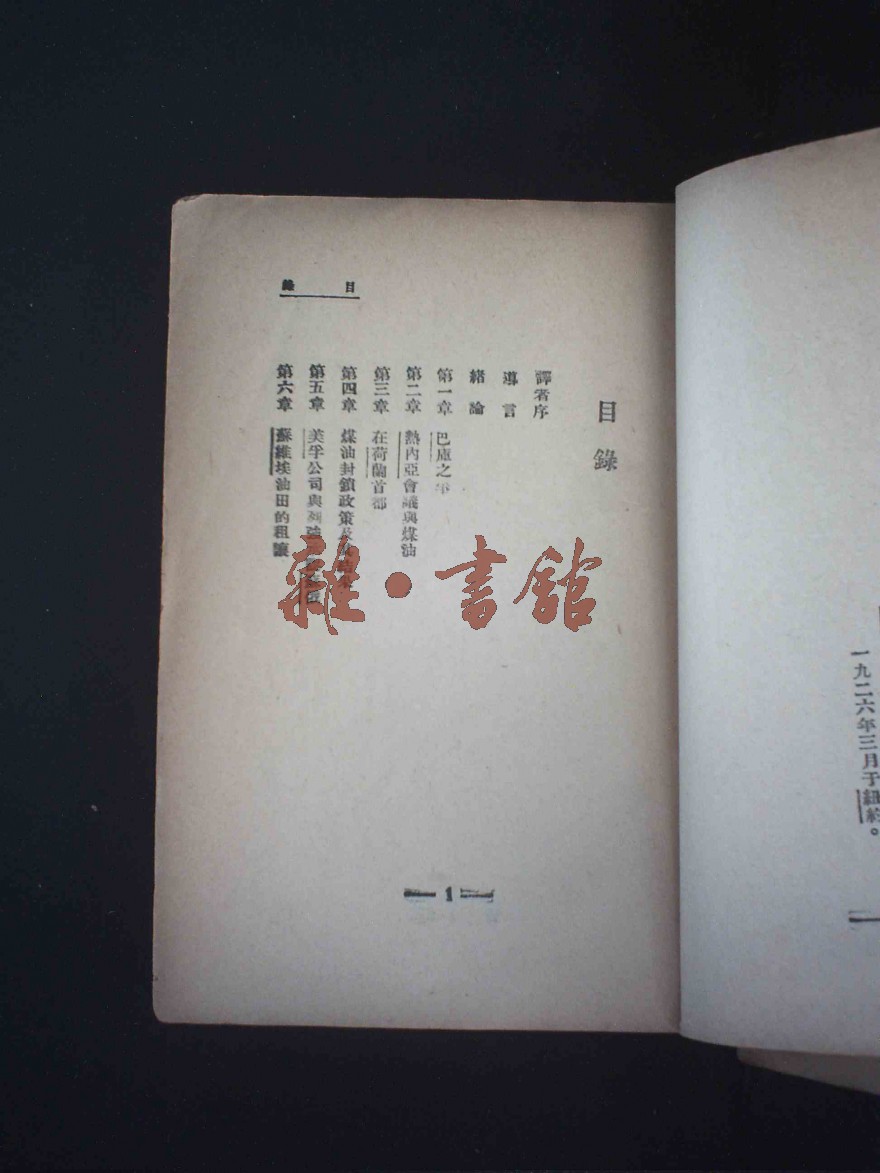 一九二六年三月于紐約。
目錄
目錄
譯者序
導言
緒論
第一章 巴庫之
第二章 熱內亞會議與煤油
第三章 在荷蘭首都
第四章 煤油封鎖政策及
第五章 美孚公司與
第六章 蘇維埃油田的租讓
1
雜·書館